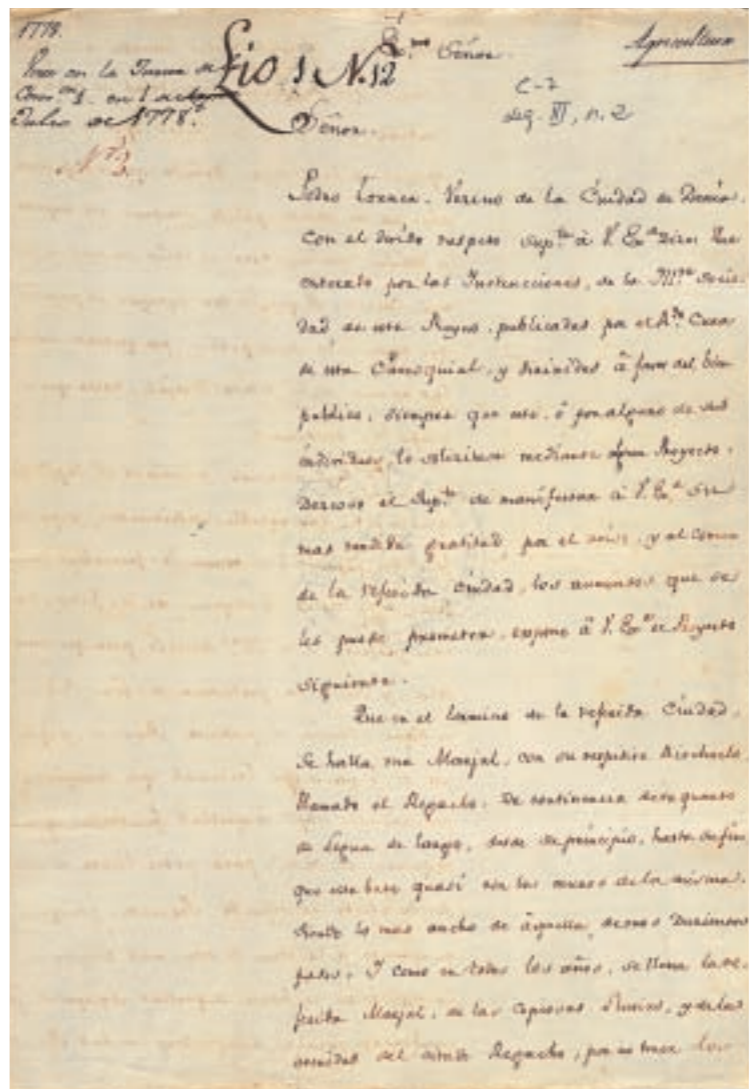 1778.
en la Junta de
Com.on 1. en 1 de
Julio de 1778.
Lio 1 N.12
Ex.mo Señor.
Agricultura
C-7
leg. III, n. 2
Señor.
N.º 3
Pedro Vecino de la Ciudad de Denia.
Con el devido respeto Sup.te à V. Ex.a Dice: Que
enterado por las Instrucciones, de la Ill.e Socie-
dad de este Reyno, publicadas por el R.do Cura
de esta Parroquial, y dirinidas à favor del bien
publico, siempre que este, ò por alguno de sus
individuos, lo soliciten mediante Proyecto.
Deseoso el Sup.te de manifestar à V. Ex.a su
mas rendida gratitud, por el y al Comun
de la referida Ciudad, los aumentos que se
les puede prometer, expone à V. Ex.a el Proyecto
Siguiente.
Que en el termino de la referida Ciudad,
se halla una Marjal, con su respetivo Riachuelo,
llamado el Regacho. De continencia de un quarto
de Legua de largo, desde su principio, hasta su fin,
que este haze quasi con los muros de la misma.
Siendo lo mas ancho de aquella, de unos Duzientos
pasos. Y como en todos los años, se llena la re-
ferida Marjal, de las copiosas lluvias, y de las
avenidas del citado Regacho, por no tener los